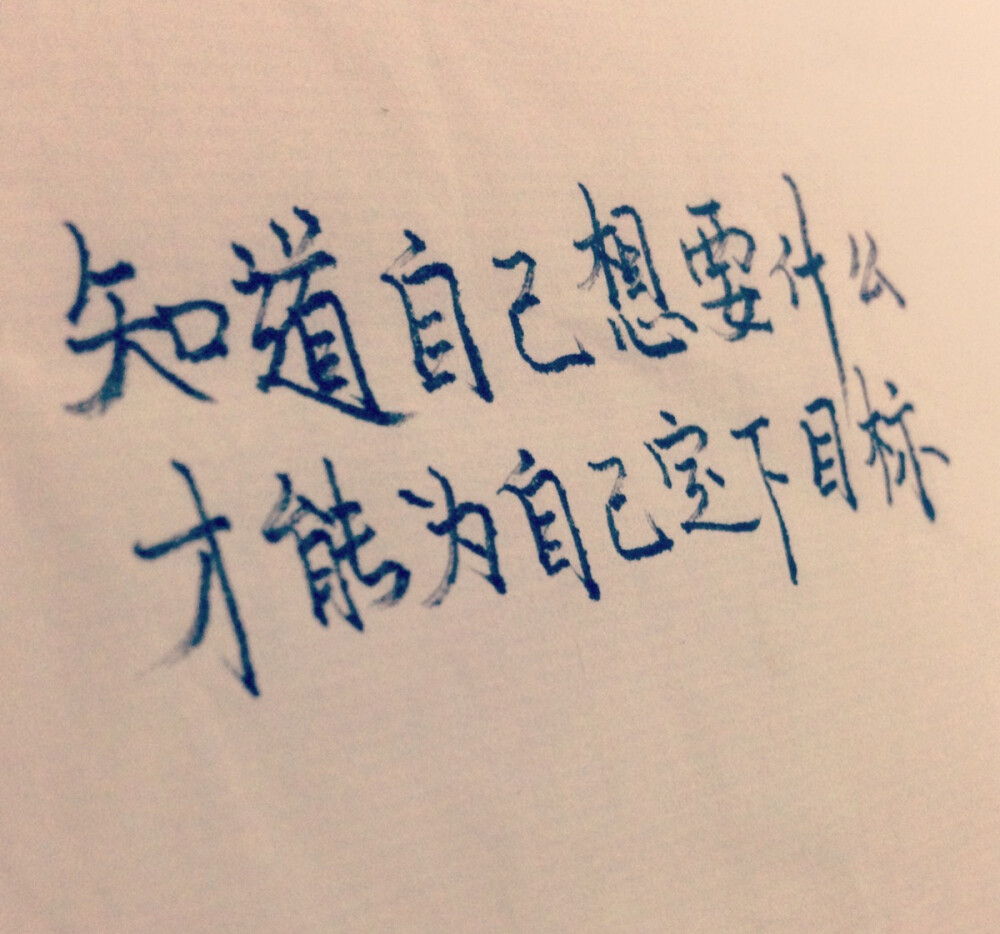 知道自己想要什么
才能为自己定下目标